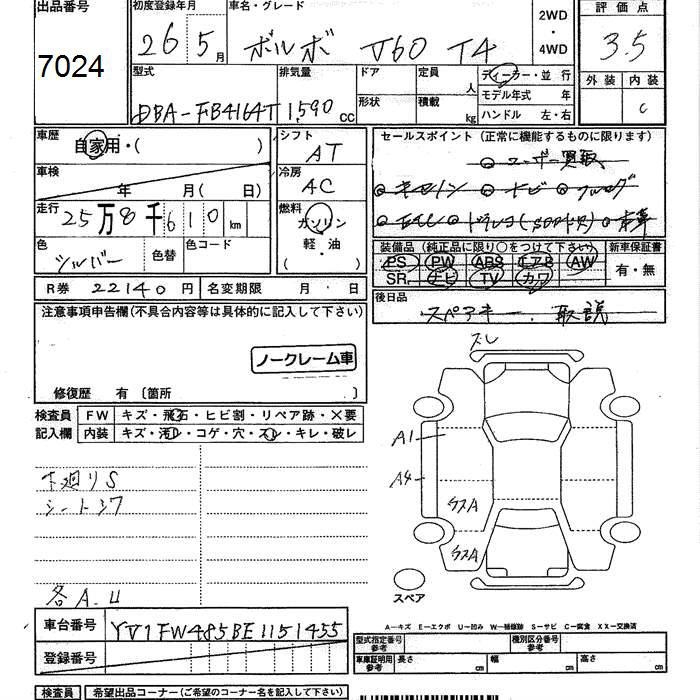 出品番号 7024
初度登録年月 26 5月
車名・グレード ボルボ V60 T4
2WD・4WD
評価点 3.5
外装 内装 C
型式 DBA-FB4164T
排気量 1,590 CC
ドア 形状
定員 人
積載 kg
ディーラー・並行
モデル年式 年
ハンドル 左・右
車歴 自家用・( )
車検 年 月( 日)
走行 25万8千610km
色 シルバー 色替 色コード
シフト AT
冷房 AC
燃料 ガソリン 軽・油
セールスポイント (正常に機能するものに限ります)
ユーザー買取
キセノン ナビ フルセグ
ETC ドラレコ 本革
装備品 (純正品に限り○をつけて下さい)
PS PW ABS エアB AW
SR ナビ TV カワ
新車保証書 有・無
後日品 スペアキー、取説
R券 22140円 名変期限 月 日
注意事項申告欄(不具合内容等は具体的に記入して下さい)
ノークレーム車
修復歴 有〔箇所 〕
検査員記入欄
FW キズ・飛石・ヒビ割・リペア跡・×要
内装 キズ・汚レ・コゲ・穴・スレ・キレ・破レ
下廻りS
シートシワ
各A.U
スレ
A1
A4
スペア
A-キズ E-エクボ U-凹み W-補修跡 S-サビ C-腐食 XX-交換済
車台番号 YV1FW485BE1151455
登録番号
型式指定番号 参考
種別区分番号 参考
車庫証明用 参考 長さ cm 幅 cm 高さ cm
検査員 希望出品コーナー(ご希望のコーナー名を記入下さい)